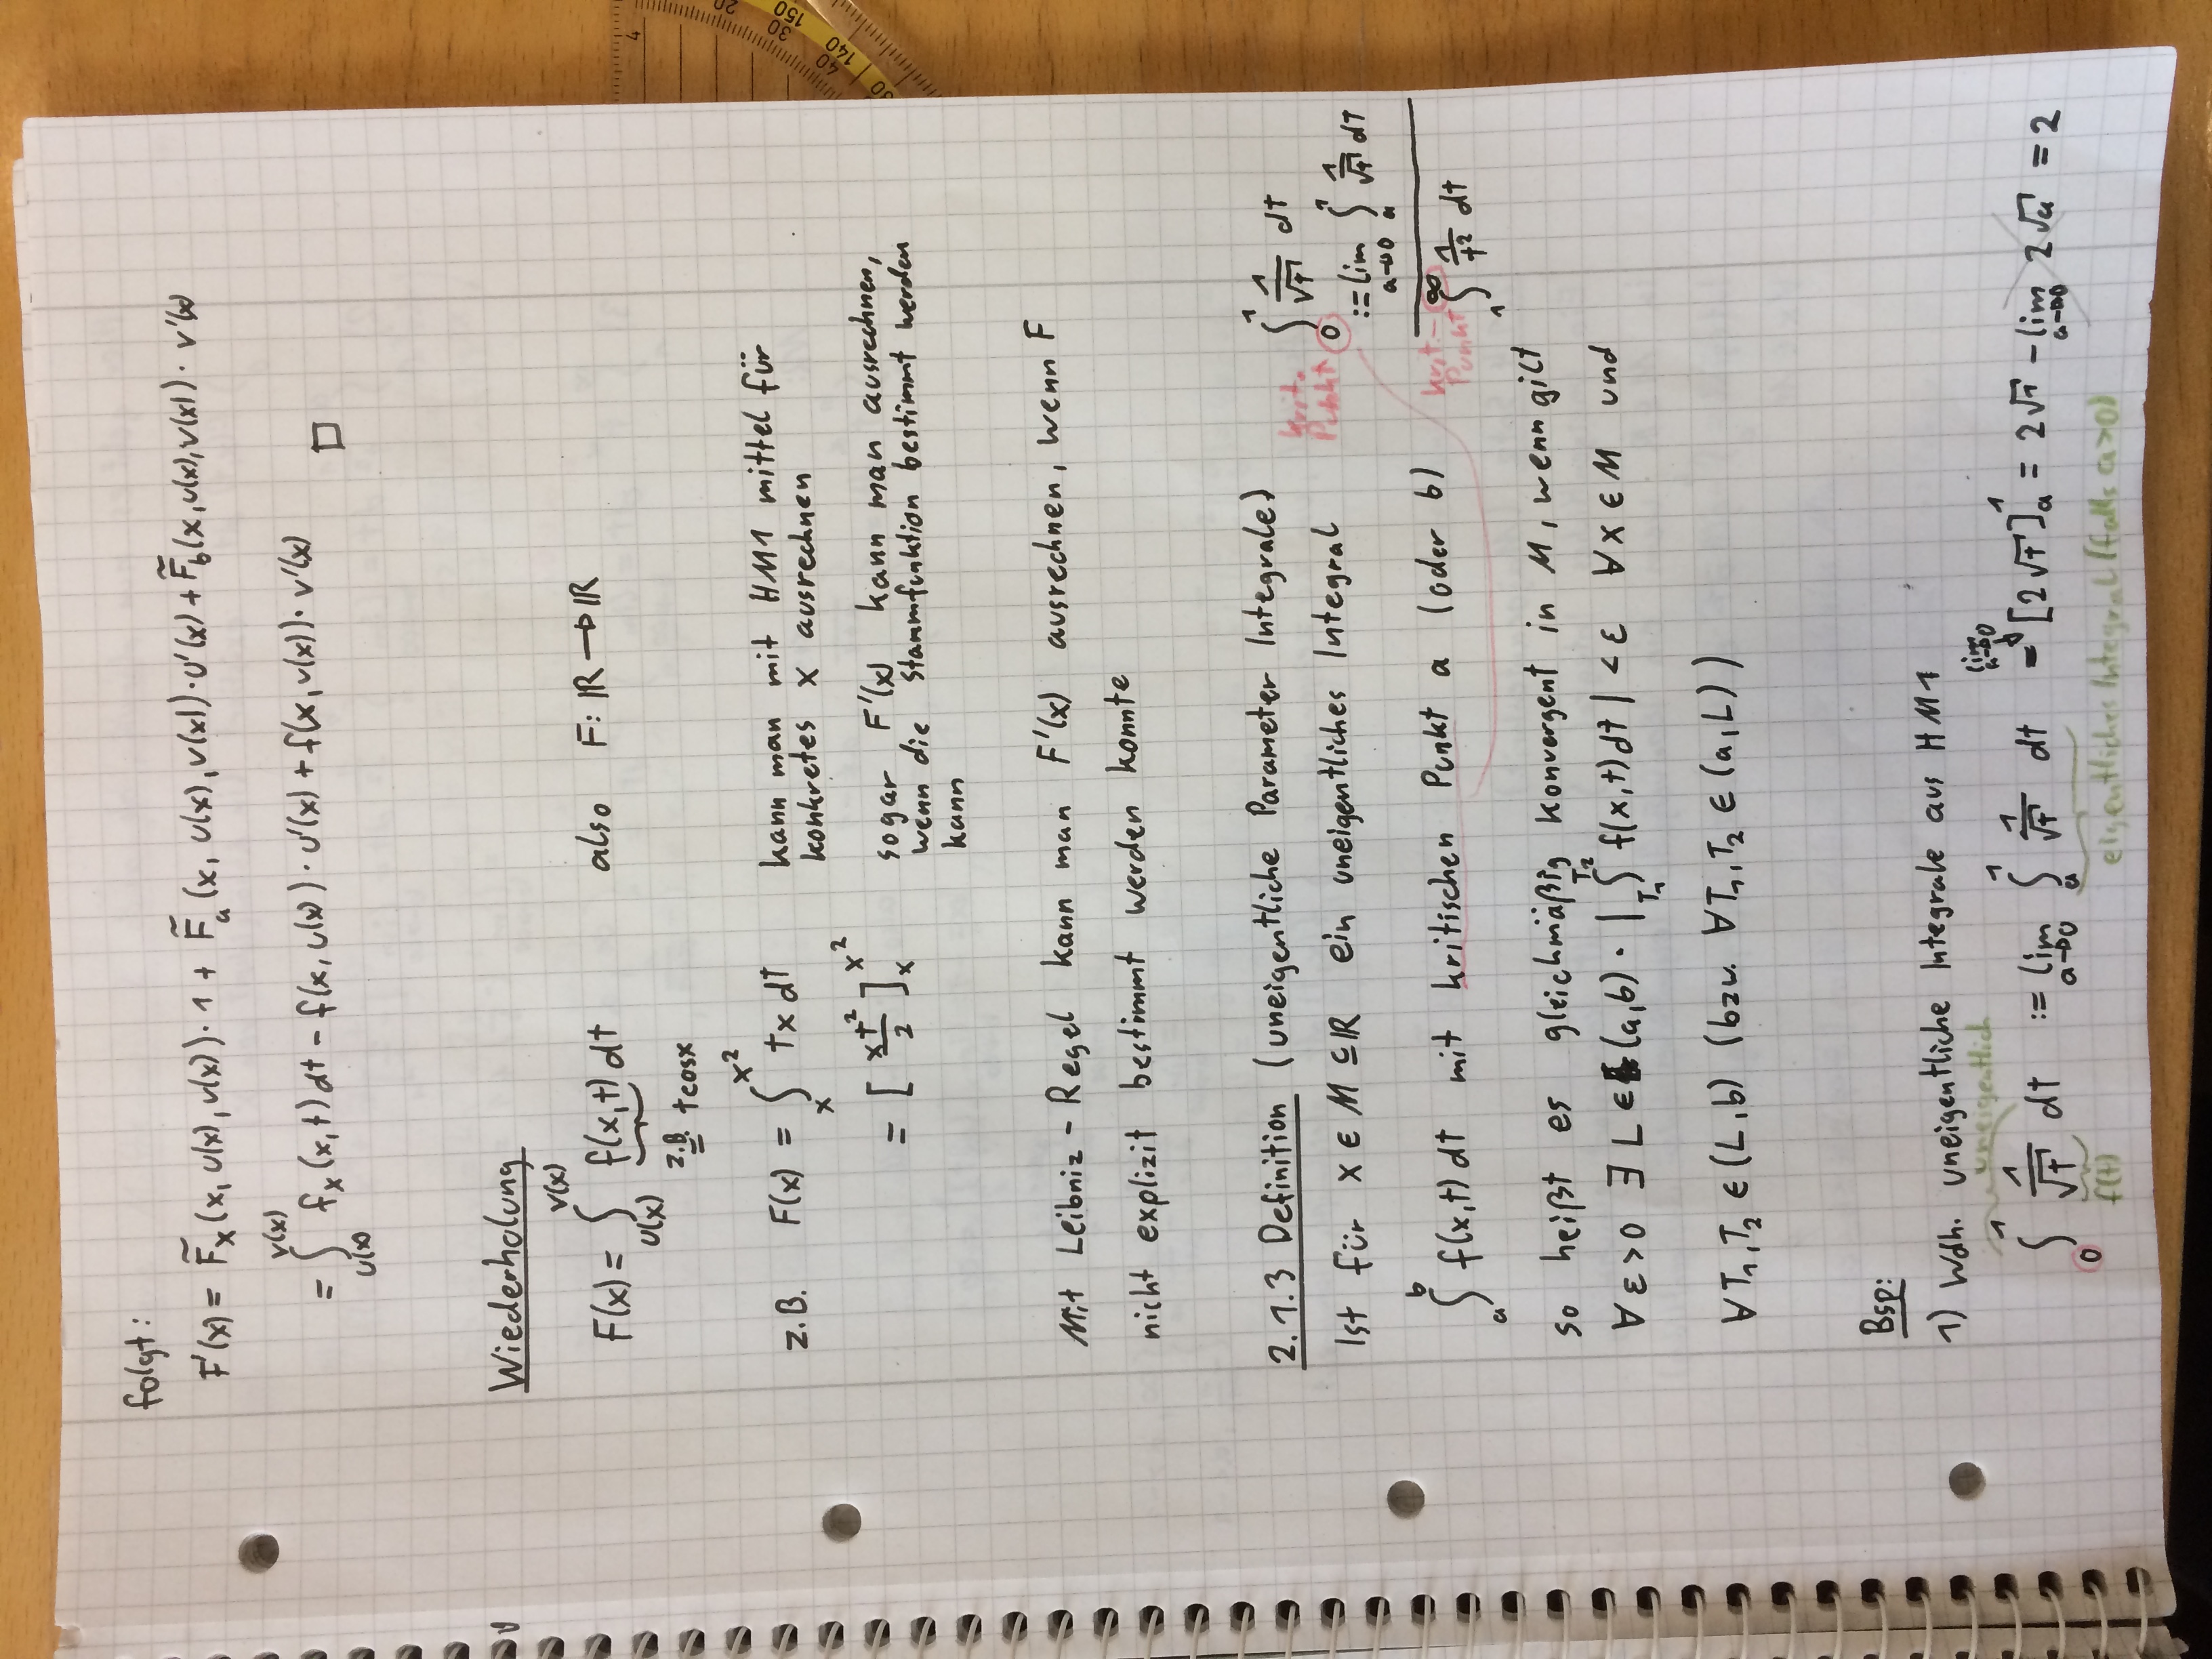 folgt:
F'(x) = F̃ₓ(x, u(x), v(x)) · 1 + F̃ₐ(x, u(x), v(x)) · u'(x) + F̃_b(x, u(x), v(x)) · v'(x)
= ∫_{u(x)}^{v(x)} fₓ(x,t) dt - f(x, u(x)) · u'(x) + f(x, v(x)) · v'(x) □
Wiederholung
F(x) = ∫_{u(x)}^{v(x)} f(x,t) dt also F: ℝ → ℝ
z.B. t cosx
z.B. F(x) = ∫_{x}^{x²} tx dt kann man mit HM1 mittel für
konkretes x ausrechnen
= [xt²/2]_{x}^{x²} sogar F'(x) kann man ausrechnen,
wenn die Stammfunktion bestimmt werden
kann
Mit Leibniz-Regel kann man F'(x) ausrechnen, wenn F
nicht explizit bestimmt werden konnte
2.1.3 Definition (uneigentliche Parameter Integrale)
Ist für x ∈ M ⊆ ℝ ein uneigentliches Integral
∫_{a}^{b} f(x,t) dt mit kritischen Punkt a (oder b)
so heißt es gleichmäßig konvergent in M, wenn gilt
∀ ε > 0 ∃ L ∈ (a,b) · |∫_{T₁}^{T₂} f(x,t) dt| < ε ∀ x ∈ M und
∀ T₁, T₂ ∈ (L, b) (bzw. ∀ T₁, T₂ ∈ (a, L))
krit.
Punkt
∫_{0}^{1} 1/√t dt
:= lim_{a→0} ∫_{a}^{1} 1/√t dt
krit-
Punkt
∫_{1}^{∞} 1/t² dt
Bsp:
1) Wdh. uneigentliche Integrale aus HM1
uneigentlich
∫_{0}^{1} 1/√t dt := lim_{a→0} ∫_{a}^{1} 1/√t dt = lim_{a→0} [2√t]_{a}^{1} = 2√1 - lim_{a→0} 2√a = 2
f(t) eigentliches Integral (falls a>0)